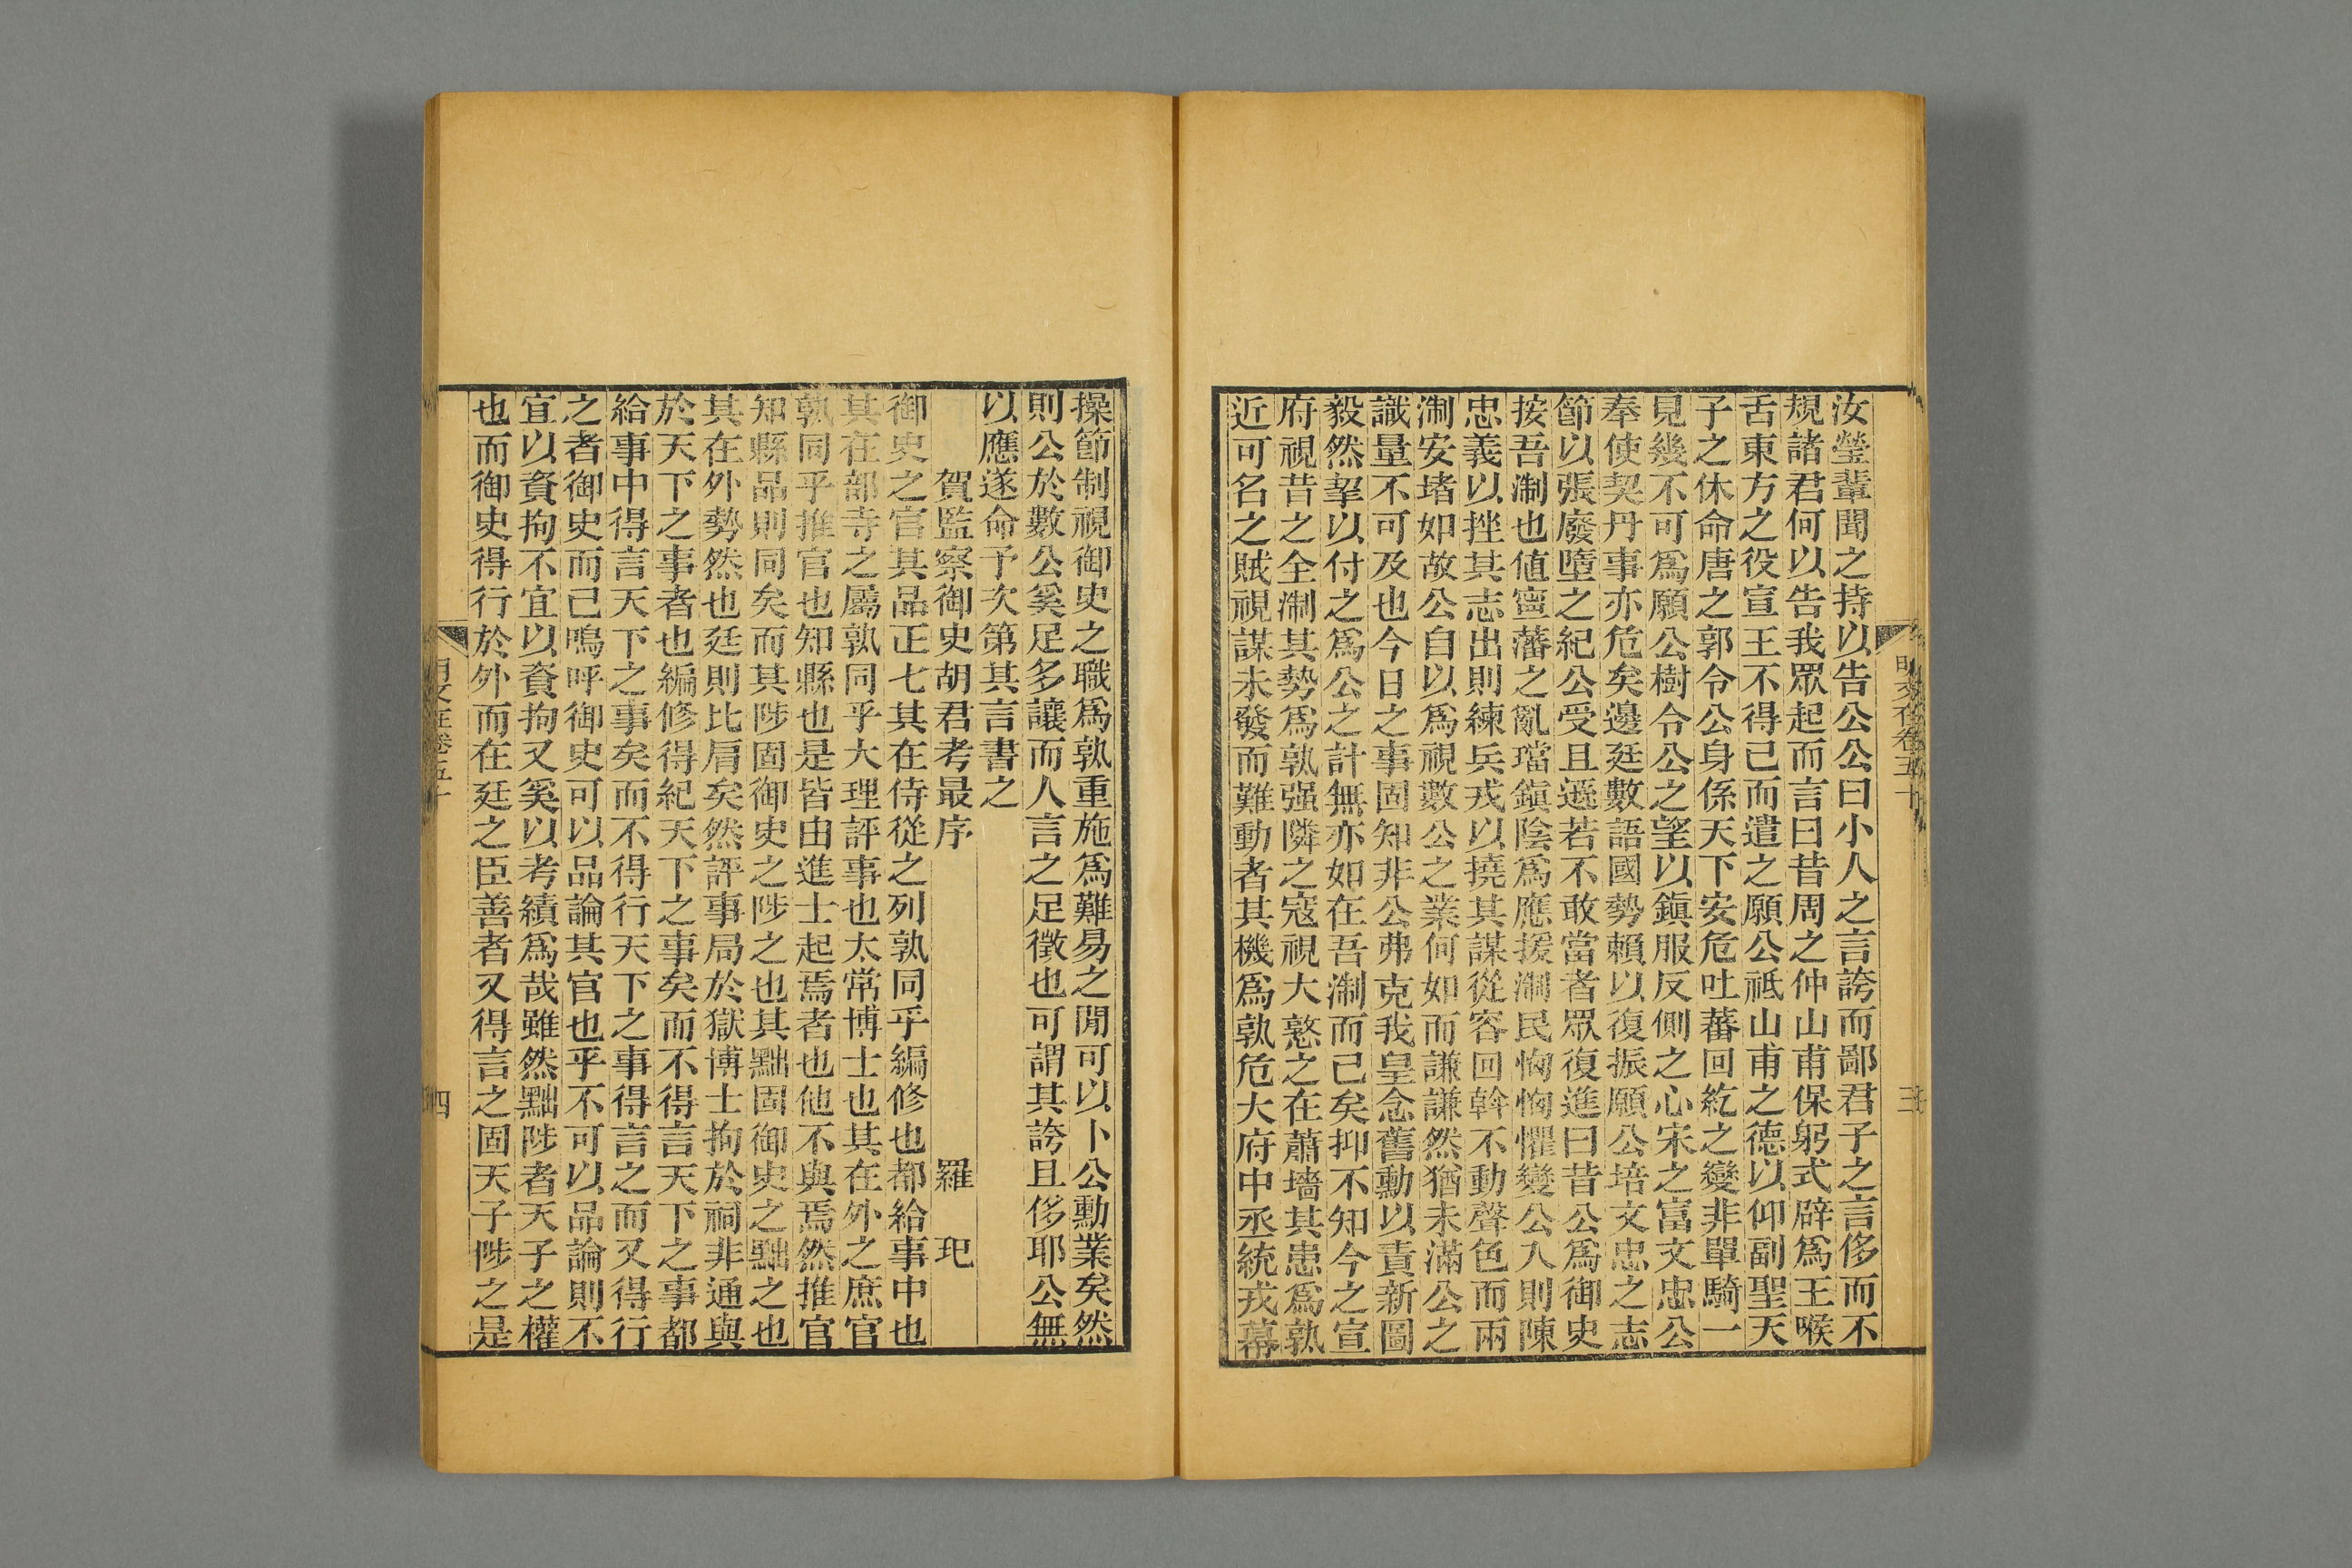 汝瑩輩聞之持以告公公曰小人之言誇而鄙君子之言侈而不
規諸君何以告我眾起而言曰昔周之仲山甫保躬式辟爲王喉
舌東方之役宣王不得已而遣之願公祗山甫之德以仰副聖天
子之休命唐之郭令公身係天下安危吐蕃回紇之變非單騎一
見幾不可爲願公樹令公之望以鎭服反側之心宋之富文忠公
奉使契丹事亦危矣邊廷數語國勢賴以復振願公培文忠之志
節以張廢墮之紀公受且遜若不敢當者眾復進曰昔公爲御史
按吾淛也値寘藩之亂璫鎭陰爲應援淛民恟恟懼變公入則陳
忠義以挫其志出則練兵戎以撓其謀從容回斡不動聲色而兩
淛安堵如故公自以爲視數公之業何如而謙謙然猶未滿公之
識量不可及也今日之事固知非公弗克我皇念舊勳以責新圖
毅然挈以付之爲公之計無亦如在吾淛而已矣抑不知今之宣
府視昔之全淛其勢爲孰强隣之寇視大憝之在蕭墻其患爲孰
近可名之賊視謀未發而難動者其機爲孰危大府中丞統戎幕
明文在卷五十
三
操節制視御史之職爲孰重施爲難易之閒可以卜公勳業矣然
則公於數公奚足多讓而人言之足徵也可謂其誇且侈耶公無
以應遂命予次第其言書之
賀監察御史胡君考最序 羅 玘
御史之官其品正七其在侍從之列孰同乎編修也都給事中也
其在部寺之屬孰同乎大理評事也太常博士也其在外之庶官
孰同乎推官也知縣也是皆由進士起焉者也他不與焉然推官
知縣品則同矣而其陟固御史之陟之也其黜固御史之黜之也
其在外勢然也廷則比肩矣然評事局於獄博士拘於祠非通與
於天下之事者也編修得紀天下之事矣而不得言天下之事都
給事中得言天下之事矣而不得行天下之事得言之而又得行
之者御史而已嗚呼御史可以品論其官也乎不可以品論則不
宜以資拘不宜以資拘又奚以考績爲哉雖然黜陟者天子之權
也而御史得行於外而在廷之臣善者又得言之固天子陟之是
明文在卷五十
四